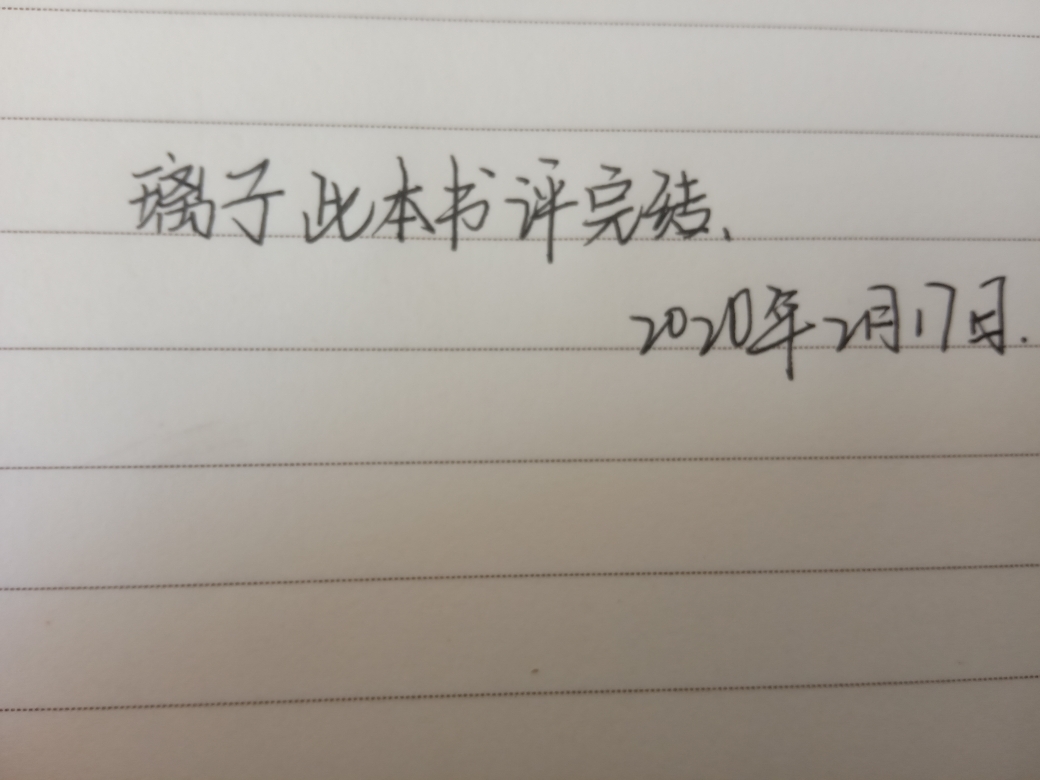 璃子此本书评完结.
2020年2月17日.